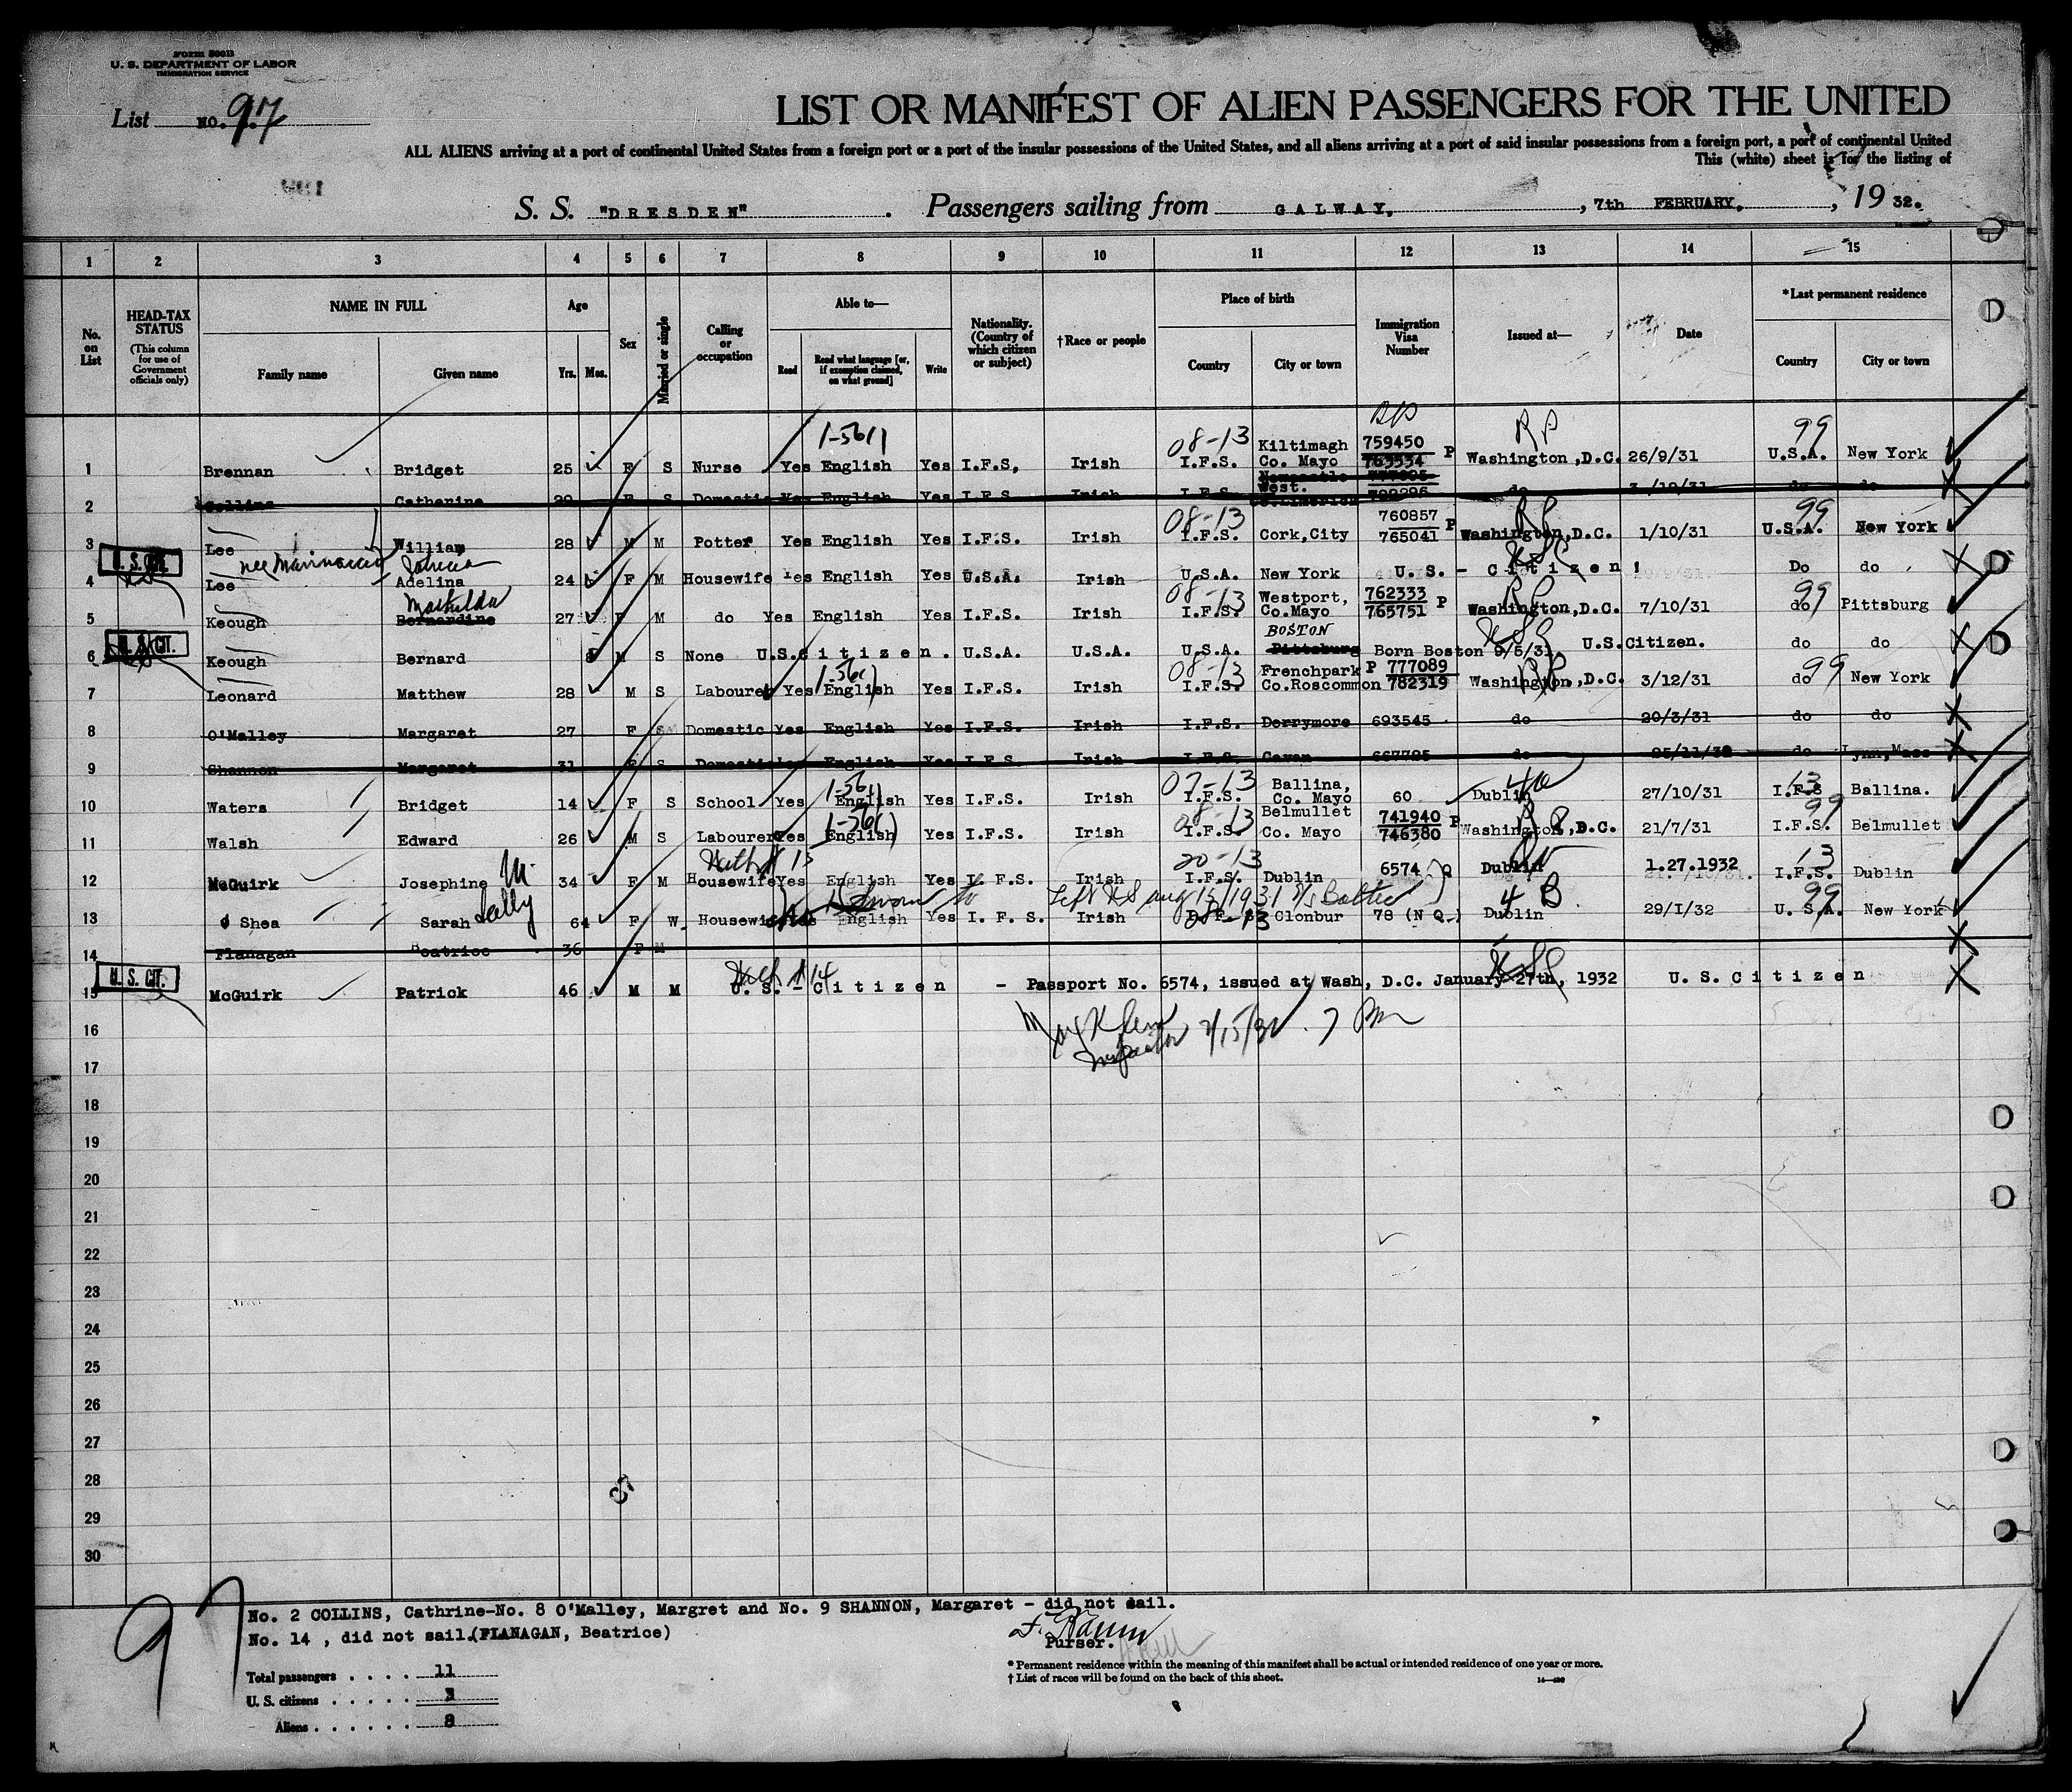 Form 500B
U. S. DEPARTMENT OF LABOR
IMMIGRATION SERVICE
List No. 97
LIST OR MANIFEST OF ALIEN PASSENGERS FOR THE UNITED
ALL ALIENS arriving at a port of continental United States from a foreign port or a port of the insular possessions of the United States, and all aliens arriving at a port of said insular possessions from a foreign port, a port of continental United
This (white) sheet is for the listing of
S. S. "DRESDEN" . Passengers sailing from GALWAY, , 7th FEBRUARY, , 19 32.
1 2 3 4 5 6 7 8 9 10 11 12 13 14 15
No. on List
HEAD-TAX STATUS
(This column for use of Government officials only)
NAME IN FULL
Family name Given name
Age
Yrs. Mos.
Sex
Married or single
Calling or occupation
Able to—
Read
Read what language [or, if exemption claimed, on what ground]
Write
Nationality. (Country of which citizen or subject)
†Race or people
Place of birth
Country City or town
Immigration Visa Number
Issued at—
Date
*Last permanent residence
Country City or town
1-56() 08-13 Kiltimagh 759450 P RP 99
1 Brennan Bridget 25 F S Nurse Yes English Yes I.F.S, Irish I.F.S. Co. Mayo 763534 Washington,D.C. 26/9/31 U.S.A. New York
Newcastle
West.
2 Collins Catherine 29 F S Domestic Yes English Yes I.F.S. Irish I.F.S. Co.Limerick do do do
08-13 760857 P 99
3 Lee William 28 M M Potter Yes English Yes I.F.S. Irish I.F.S. Cork,City 765041 Washington,D.C. 1/10/31 U.S.A. New York
U. S. CIT. nee
4 Lee Adelina 24 F M Housewife Yes English Yes U.S.A. Irish U.S.A. New York U.S. - Citizen! Do do
Mathilda 08-13 Westport, 762333 P 99
5 Keough Bernardine 27 F M do Yes English Yes I.F.S. Irish I.F.S. Co.Mayo 765751 Washington,D.C. 7/10/31 do Pittsburg
U. S. CIT. BOSTON
6 Keough Bernard M S None U.S.Citizen. U.S.A. U.S.A. U.S.A. Pittsburg Born Boston 9/5/31 U.S.Citizen. do do
1-56() 08-13 Frenchpark P 777089 99
7 Leonard Matthew 28 M S Labourer Yes English Yes I.F.S. Irish I.F.S. Co.Roscommon 782319 Washington,D.C. 3/12/31 do New York
8 O'Malley Margaret 27 F S Domestic Yes English Yes I.F.S. Irish I.F.S. Derrymore 693545 do 20/3/31 do do
9 Shannon Margaret 31 F S Domestic Yes English Yes I.F.S. Irish I.F.S. Cavan 667795 do do Lynn,Mass
1-56() 07-13 Ballina, 13
10 Waters Bridget 14 F S School Yes English Yes I.F.S. Irish I.F.S. Co. Mayo 60 Dublin 27/10/31 I.F.S Ballina.
1-56() 08-13 Belmullet 741940 P 99
11 Walsh Edward 26 M S Labourer Yes English Yes I.F.S. Irish I.F.S. Co. Mayo 746380 Washington,D.C. 21/7/31 I.F.S. Belmullet
M. 20-13 13
12 McGuirk Josephine 34 F M Housewife Yes English Yes I.F.S. Irish I.F.S. Dublin 6574 Dublin 1.27.1932 I.F.S. Dublin
Left US Aug 15/1931 S/s Baltic 4 B 99
13 O Shea Sarah Sally 64 F W. Housewife Yes English Yes I. F. S. Irish Clonbur 78 (N Q.) Dublin 29/I/32 U. S.A. New York
14 Flanagan Beatrice 36 F M
U. S. CIT.
15 McGuirk Patrick 46 M M U.S.-Citizen - Passport No. 6574, issued at Wash, D.C. January 27th, 1932 U.S.Citizen
Inspector 2/15/32
16
17
18
19
20
21
22
23
24
25
26
27
28
29
30
97
No. 2 COLLINS, Cathrine-No. 8 O'Malley, Margret and No. 9 SHANNON, Margaret - did not sail.
No. 14 , did not sail.(FLANAGAN, Beatrice)
Purser.
Total passengers . . . . 11
U. S. citizens . . . . . 3
Aliens . . . . . . 8
* Permanent residence within the meaning of this manifest shall be actual or intended residence of one year or more.
† List of races will be found on the back of this sheet.